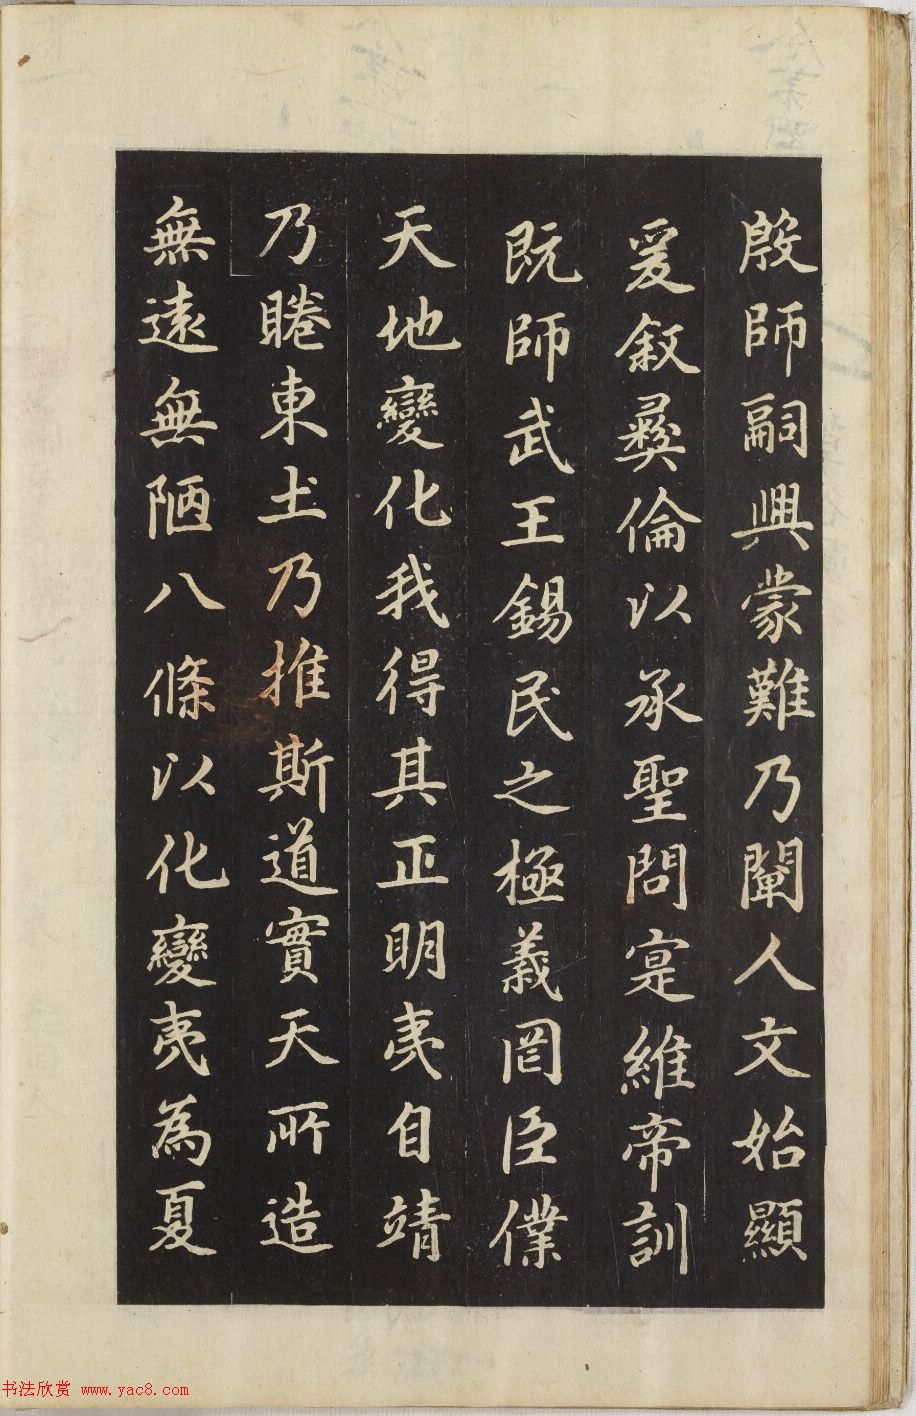 殷師嗣興蒙難乃闡人文始顯
爰叙彝倫以承聖問寔維帝訓
既師武王錫民之極義罔臣僕
天地變化我得其正明夷自靖
乃睠東土乃推斯道實天所造
無遠無陋八條以化變夷為夏
书法欣赏 www.yac8.com